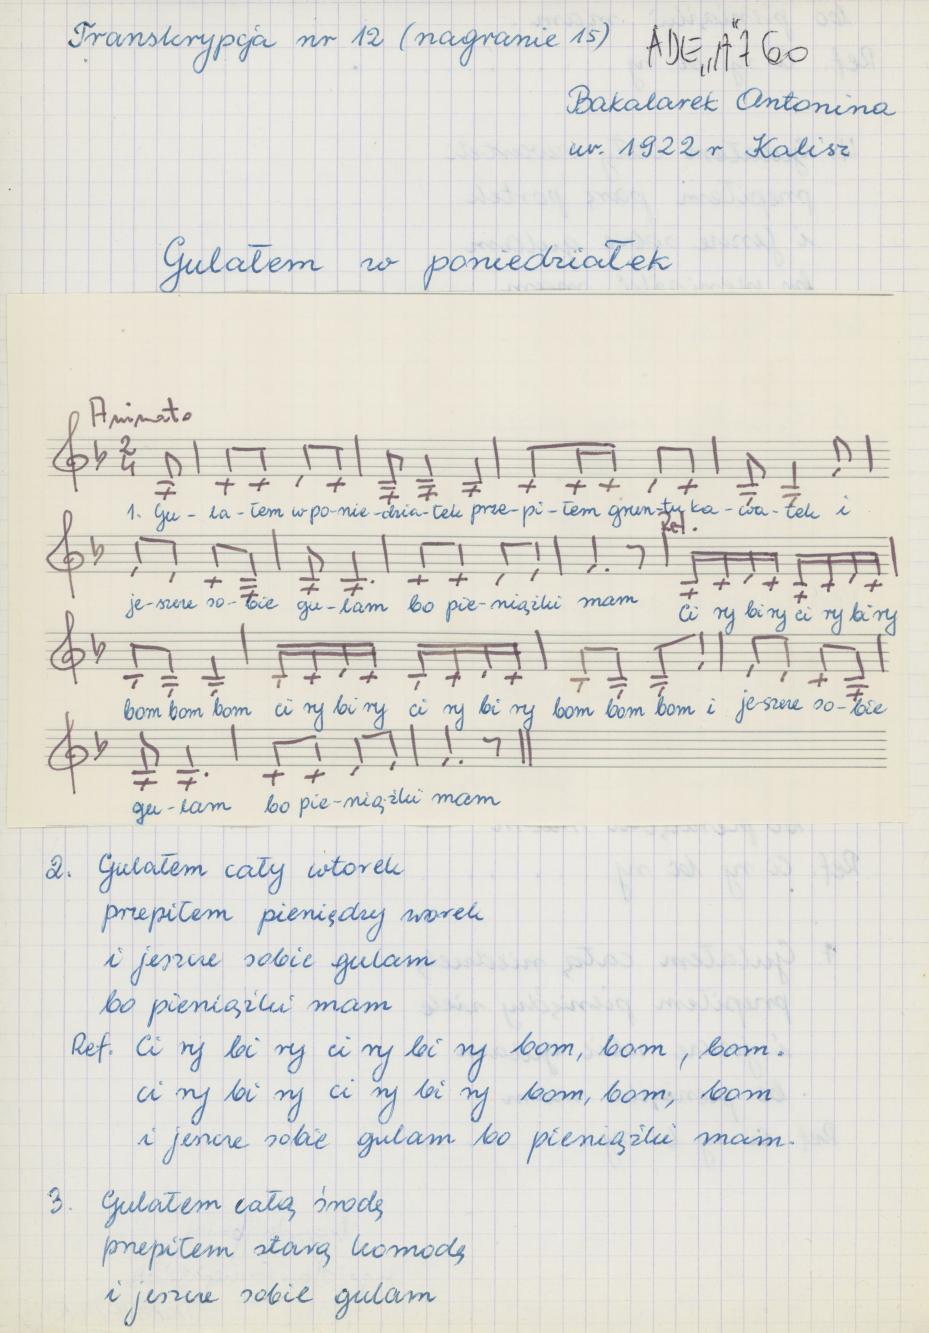 Transkrypcja nr 12 (nagranie 15) ADE „A" 760
Bakalarek Antonina
ur. 1922 r Kalisz
Gulałem w poniedziałek
Animato
2
4
1. Gu - la - łem w po - nie - dzia - łek prze - pi - łem grun - tu ka - wa - łek i
Ref.
je - szcze so - bie gu - lam bo pie - niążki mam Ci ry bi ry ci ry bi ry
bom bom bom ci ry bi ry ci ry bi ry bom bom bom i je - szcze so - bie
gu - lam bo pie - niążki mam
2. Gulałem cały wtorek
przepiłem pieniędzy worek
i jeszcze sobie gulam
bo pieniążki mam
Ref. Ci ry bi ry ci ry bi ry bom, bom, bom.
ci ry bi ry ci ry bi ry bom, bom, bom
i jeszcze sobie gulam bo pieniążki mam.
3. Gulałem całą środę
przepiłem starą komodę
i jeszcze sobie gulam